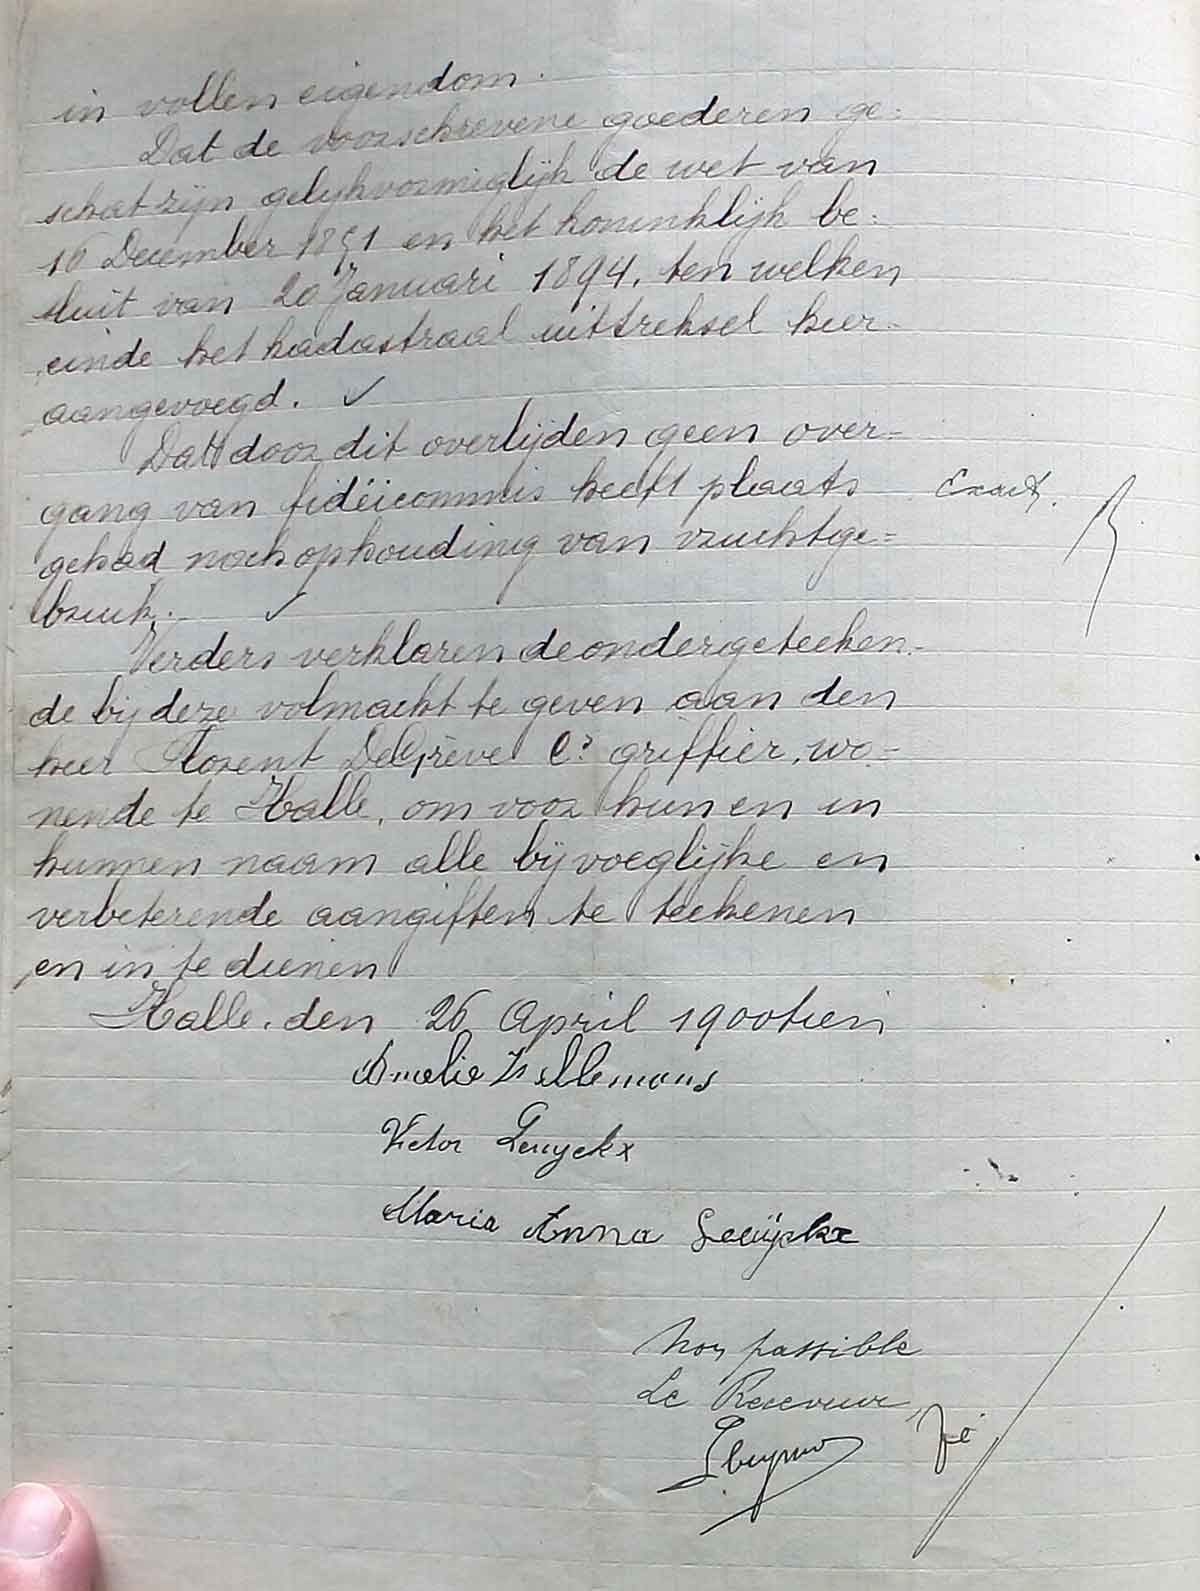 in vollen eigendom.
Dat de voorschrevene goederen ge=
schat zijn gelijkvormiglijk de wet van
16 December 1851 en het koninklijk be=
sluit van 20 Januari 1894, ten welken
einde het kadastraal uittreksel hier=
aangevoegd. ✓
Dat door dit overlijden geen over=
gang van fidéicommis heeft plaats
Exact.
gehad noch ophouding van vruchtge=
bruik. ✓
Verders verklaren de ondergeteeken=
de bij deze volmacht te geven aan den
heer Florent DeGrève Cs griffier, wo=
nende te Halle, om voor hun en in
hunnen naam alle bijvoeglijke en
verbeterende aangiften te teekenen
en in te dienen
Halle, den 26 April 1900tien
Amelie
Victor
Maria Anna
Non passible
Le Receveur